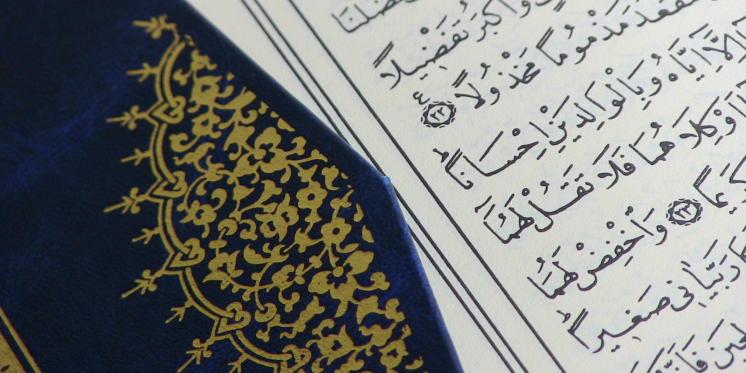 فَضَّلْنَا
وَأَكْبَرُ تَفْضِيلًا
فَتَقْعُدَ مَذْمُومًا مَخْذُولًا ٢٢
إِلَّا إِيَّاهُ وَبِالْوَالِدَيْنِ إِحْسَانًا
أَوْ كِلَاهُمَا فَلَا تَقُلْ لَهُمَا
٢٣ وَاخْفِضْ لَهُمَا
رَبَّيَانِي صَغِيرًا